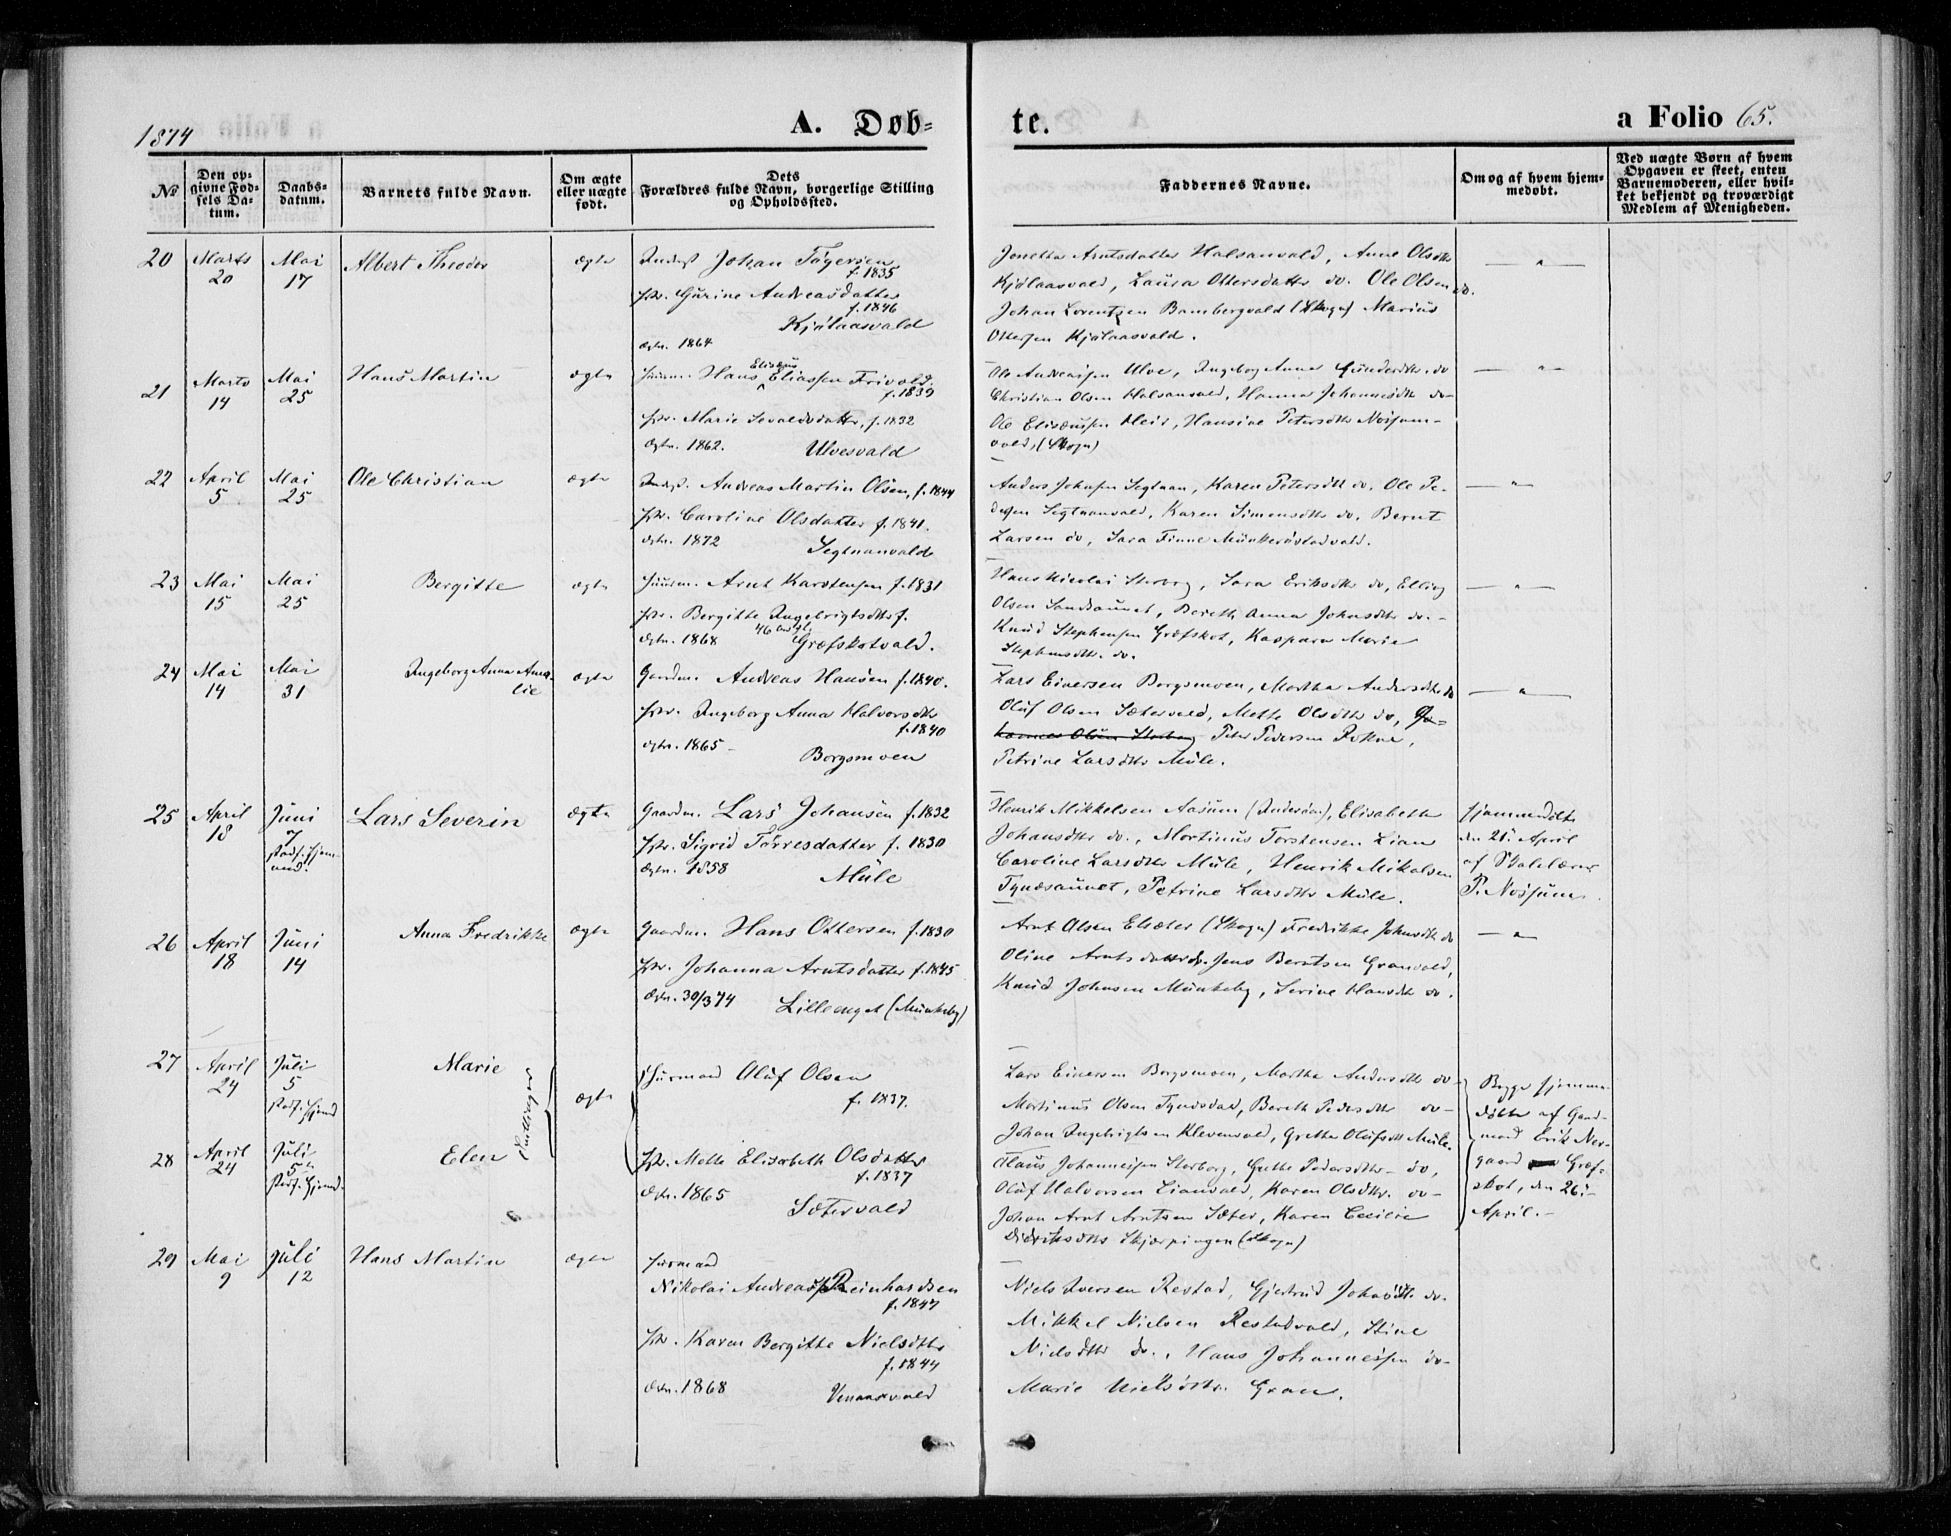 1874
A. Døb-
te.
a Folio 65.
№
Den op-
givne Fød-
sels Da-
tum.
Daabs-
datum.
Barnets fulde Navn.
Om ægte
eller uægte
født.
Dets
Forældres fulde Navn, borgerlige Stilling
og Opholdssted.
Faddernes Navne.
Om og af hvem hjem-
medøbt.
Ved uægte Børn af hvem
Opgaven er skeet, enten
Barnemoderen, eller hvil-
ket bekjendt og troværdigt
Medlem af Menigheden.
20
Marts
20
Mai
17
Albert Theodor
ægte
Inderst Johan Tøgersen
f. 1835
Gurine Andreasdatter
f. 1846
Kjølaasvald
1864
Jonetta Arntsdatter Halsanvald, Anne Olsdtr
Kjølaasvald, Laura Ottersdatter do. Ole Olsen do.
Johan Lorentzen Bambergvald (Skogn) Marius
Ottersen Kjølaasvald.
21
Marts
14
Mai
25
Hans Martin
ægte
Elisæus
Huusm. Hans Eliassen Trivold.
f. 1839
Marie Sevaldsdatter, f. 1832
1862. Ulvesvald
Ole Andreassen Ulve, Ingeborg Anna do
Christian Olsen Halsanvald, Hanna Johannesdtr do-
Ole Elisæussen Heir, Hansine Petersdtr
vald, (Skogn)
22
April
5
Mai
25
Ole Christian
ægte
Inderst. Andreas Martin Olsen, f. 1844
Caroline Olsdatter f. 1841.
1872 Segtnanvald
Anders Johnsen Segtnan, Karen Petersdtr do. Ole Pe-
dersen Segtnanvald, Karen Simensdtr do, Bernt
Larsen do, Sara Finne Munkerøstadvald.
23
Mai
15
Mai
25
Bergitte
ægte
Huusm. Arnt Karstensen f. 1831
Bergitte Ingebrigtsdtr f.
46 Aar gl.
1868 Græfskotvald.
Hans Nicolai Storborg, Sara Eriksdtr do, Elling
Olsen Sandaunet, Bereth Anna Johnsdtr do.-
Knud Stephensen Græfskot, Kaspara Marie
Stephensdtr. do.
24
Mai
14
Mai
31
Ingeborg Anna Ama-
lie
ægte
Gaardm. Andreas Hansen f. 1840.
Ingeborg Anna Halvorsdtr
f. 1840
1865- Borgsmoen
Lars Einersen Borgsmoen, Martha Andersdtr do
Oluf Olsen Sætervald, Mette Olsdtr do, Jo-
hannes Olsen Storborg Peter Pedersen Rokne,
Petrine Larsdtr Mule.
25
April
18
Juni
7
stadf. Hjem-
med.
Lars Severin
ægte
Gaardm. Lars Johansen f. 1832
Sigrid Tørresdatter f. 1830
1858 Mule
Henrik Mikkelsen Aasum (Inderøen), Elisabeth
Johansdtr do., Martinus Torstensen Lian
Caroline Larsdtr Mule, Henrik Mikalsen
Tynæsaunet, Petrine Larsdtr Mule.
Hjemmedøbt
den 21. April
af Skolelærer
P. Nossum.
26
April
18
Juni
14
Anna Fredrikke
ægte
Gaardm. Hans Ottersen f. 1830
Johanna Arntsdatter f. 1845
30/3 74 Lilleenget (Munkeby)
Arnt Olsen Elsæter (Skogn) Fredrikke Johnsdtr do
Oline Arntsdatter do. Jens Berntsen Granvald,
Knud Johnsen Munkeby, Serine Hansdtr do.
27
April
24
Juli
5
stadf. Hjemd
Marie
Tvillinger
ægte
Husmand Oluf Olsen
f. 1837.
28
April
24
Juli
5
stadf. Hjemd.
Elen
Mette Elisabeth Olsdatter
f. 1837
1865 Sætervald
Lars Einersen Borgsmoen, Martha Andersdtr do-
Martinus Olsen Tynæsdal, Bereth Pedersdtr do-
Johan Ingebrigtsen Klevenvald, Grethe Olufsdtr Mule.
Claus Johannessen Storborg, Guthe Pedersdtr- do,
Oluf Halvorsen Lianvald, Karen Olsdtr. do-
Johan Arnt Arntsen Sæter, Karen Cecilie
Didriksdtr Skjerpingen (Skogn)
Begge hjemme-
døbte af Gaard-
mand Erik Ner-
gaard Græf-
skot, den 26.
April.-
29
Mai
9
Juli
12
Hans Martin
ægte
Husmand
Nikolai Andreas Reinhardsen
f. 1847
Karen Bergitte Nielsdtr
f. 1844
1868 Venaasvald
Niels Iversen Restad, Gjertrud Johansdtr. do.
Mikkel Nielsen Restadvald, Stine
Nielsdtr do., Hans Johannessen do-
Marie Nielsdtr. Gran.